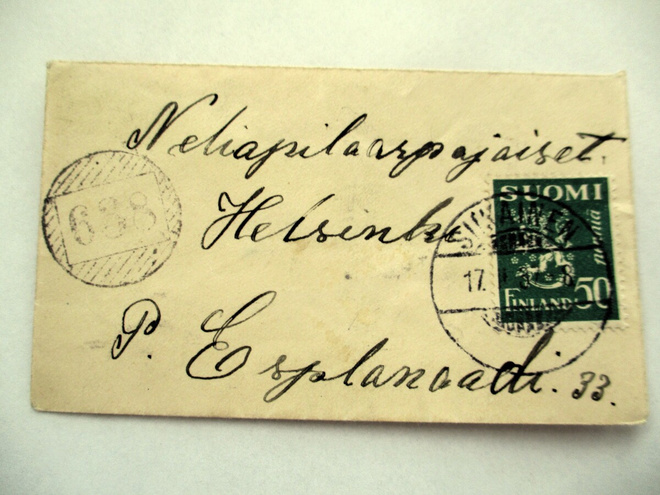 Neliapilaarpajaiset.
Helsinki
P. Esplanaadi. 33.
638
SUOMI
FINLAND
50
penniä
17.